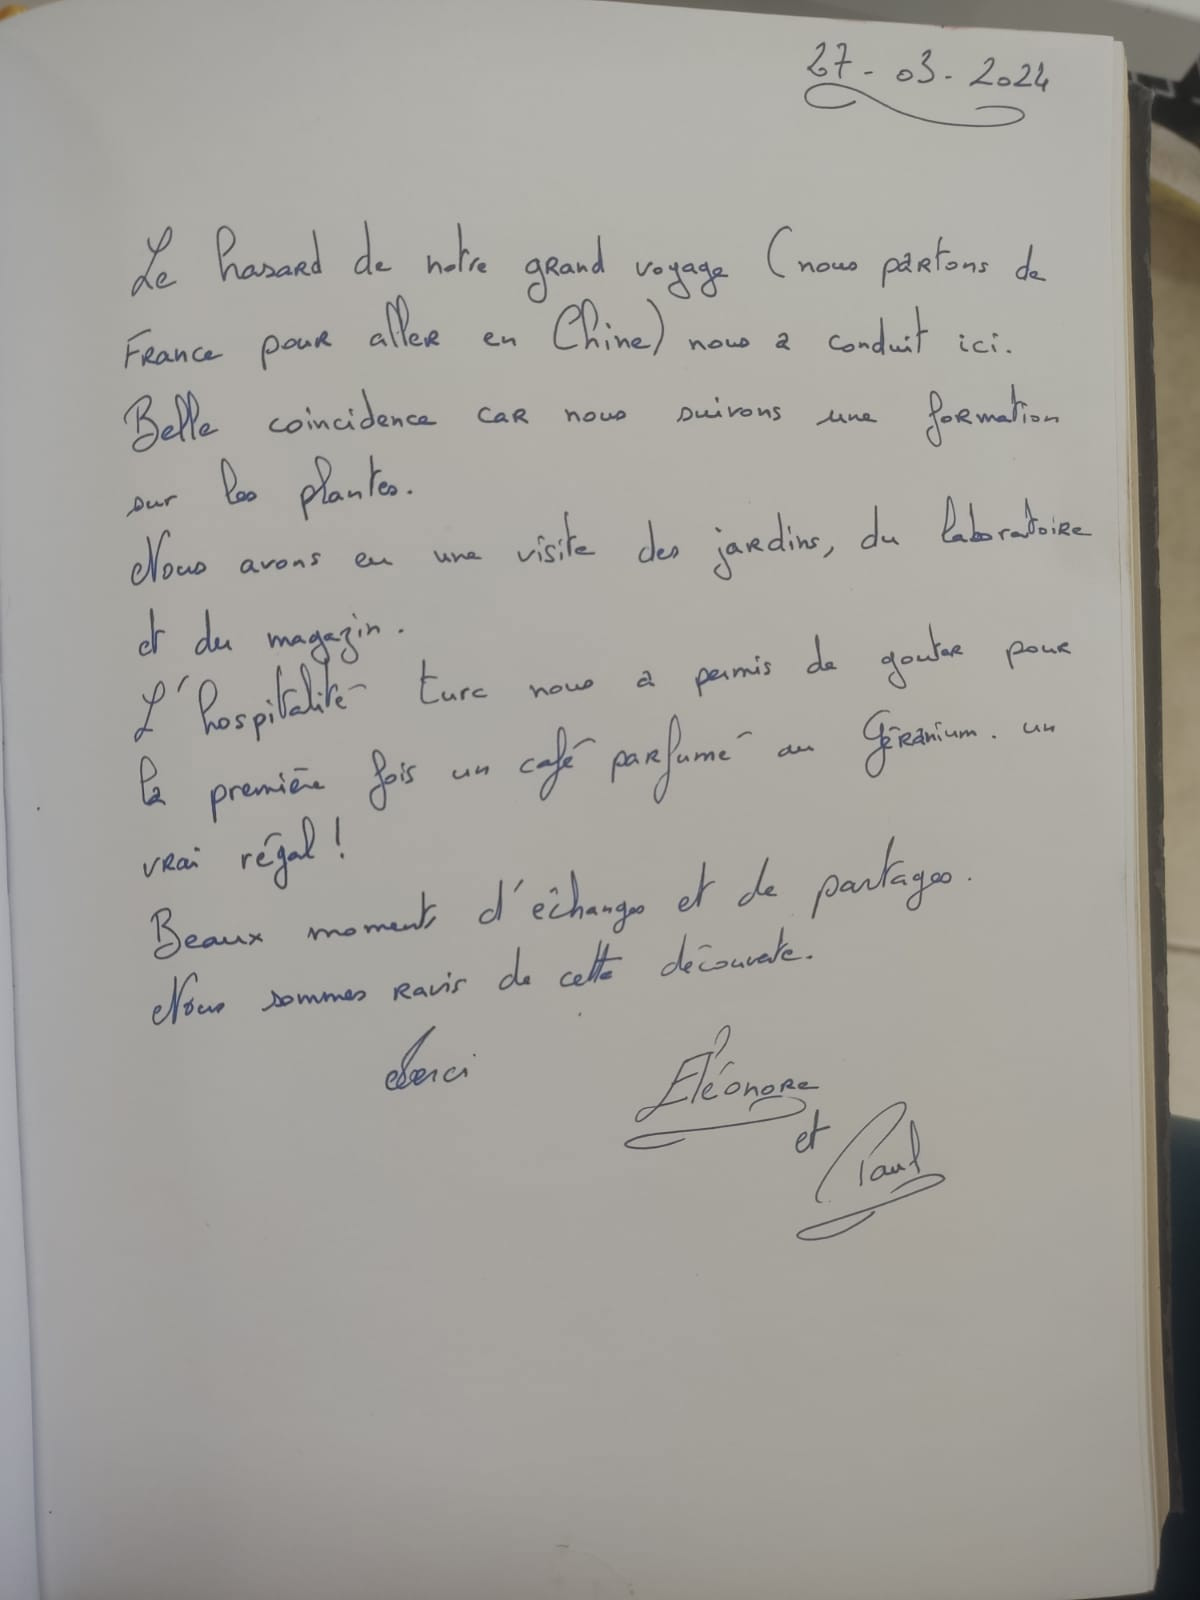 27-03-2024
Le hasard de notre grand voyage (nous partons de
France pour aller en Chine) nous a conduit ici.
Belle coincidence car nous suivons une formation
sur les plantes.
Nous avons eu une visite des jardins, du laboratoire
et du magazin.
L'hospitalité turc nous a permis de gouter pour
la première fois un café parfumé au Géranium. un
vrai régal !
Beaux moments d'échanges et de partages.
Nous sommes ravis de cette découverte.
Merci
Eléonore
et
Paul